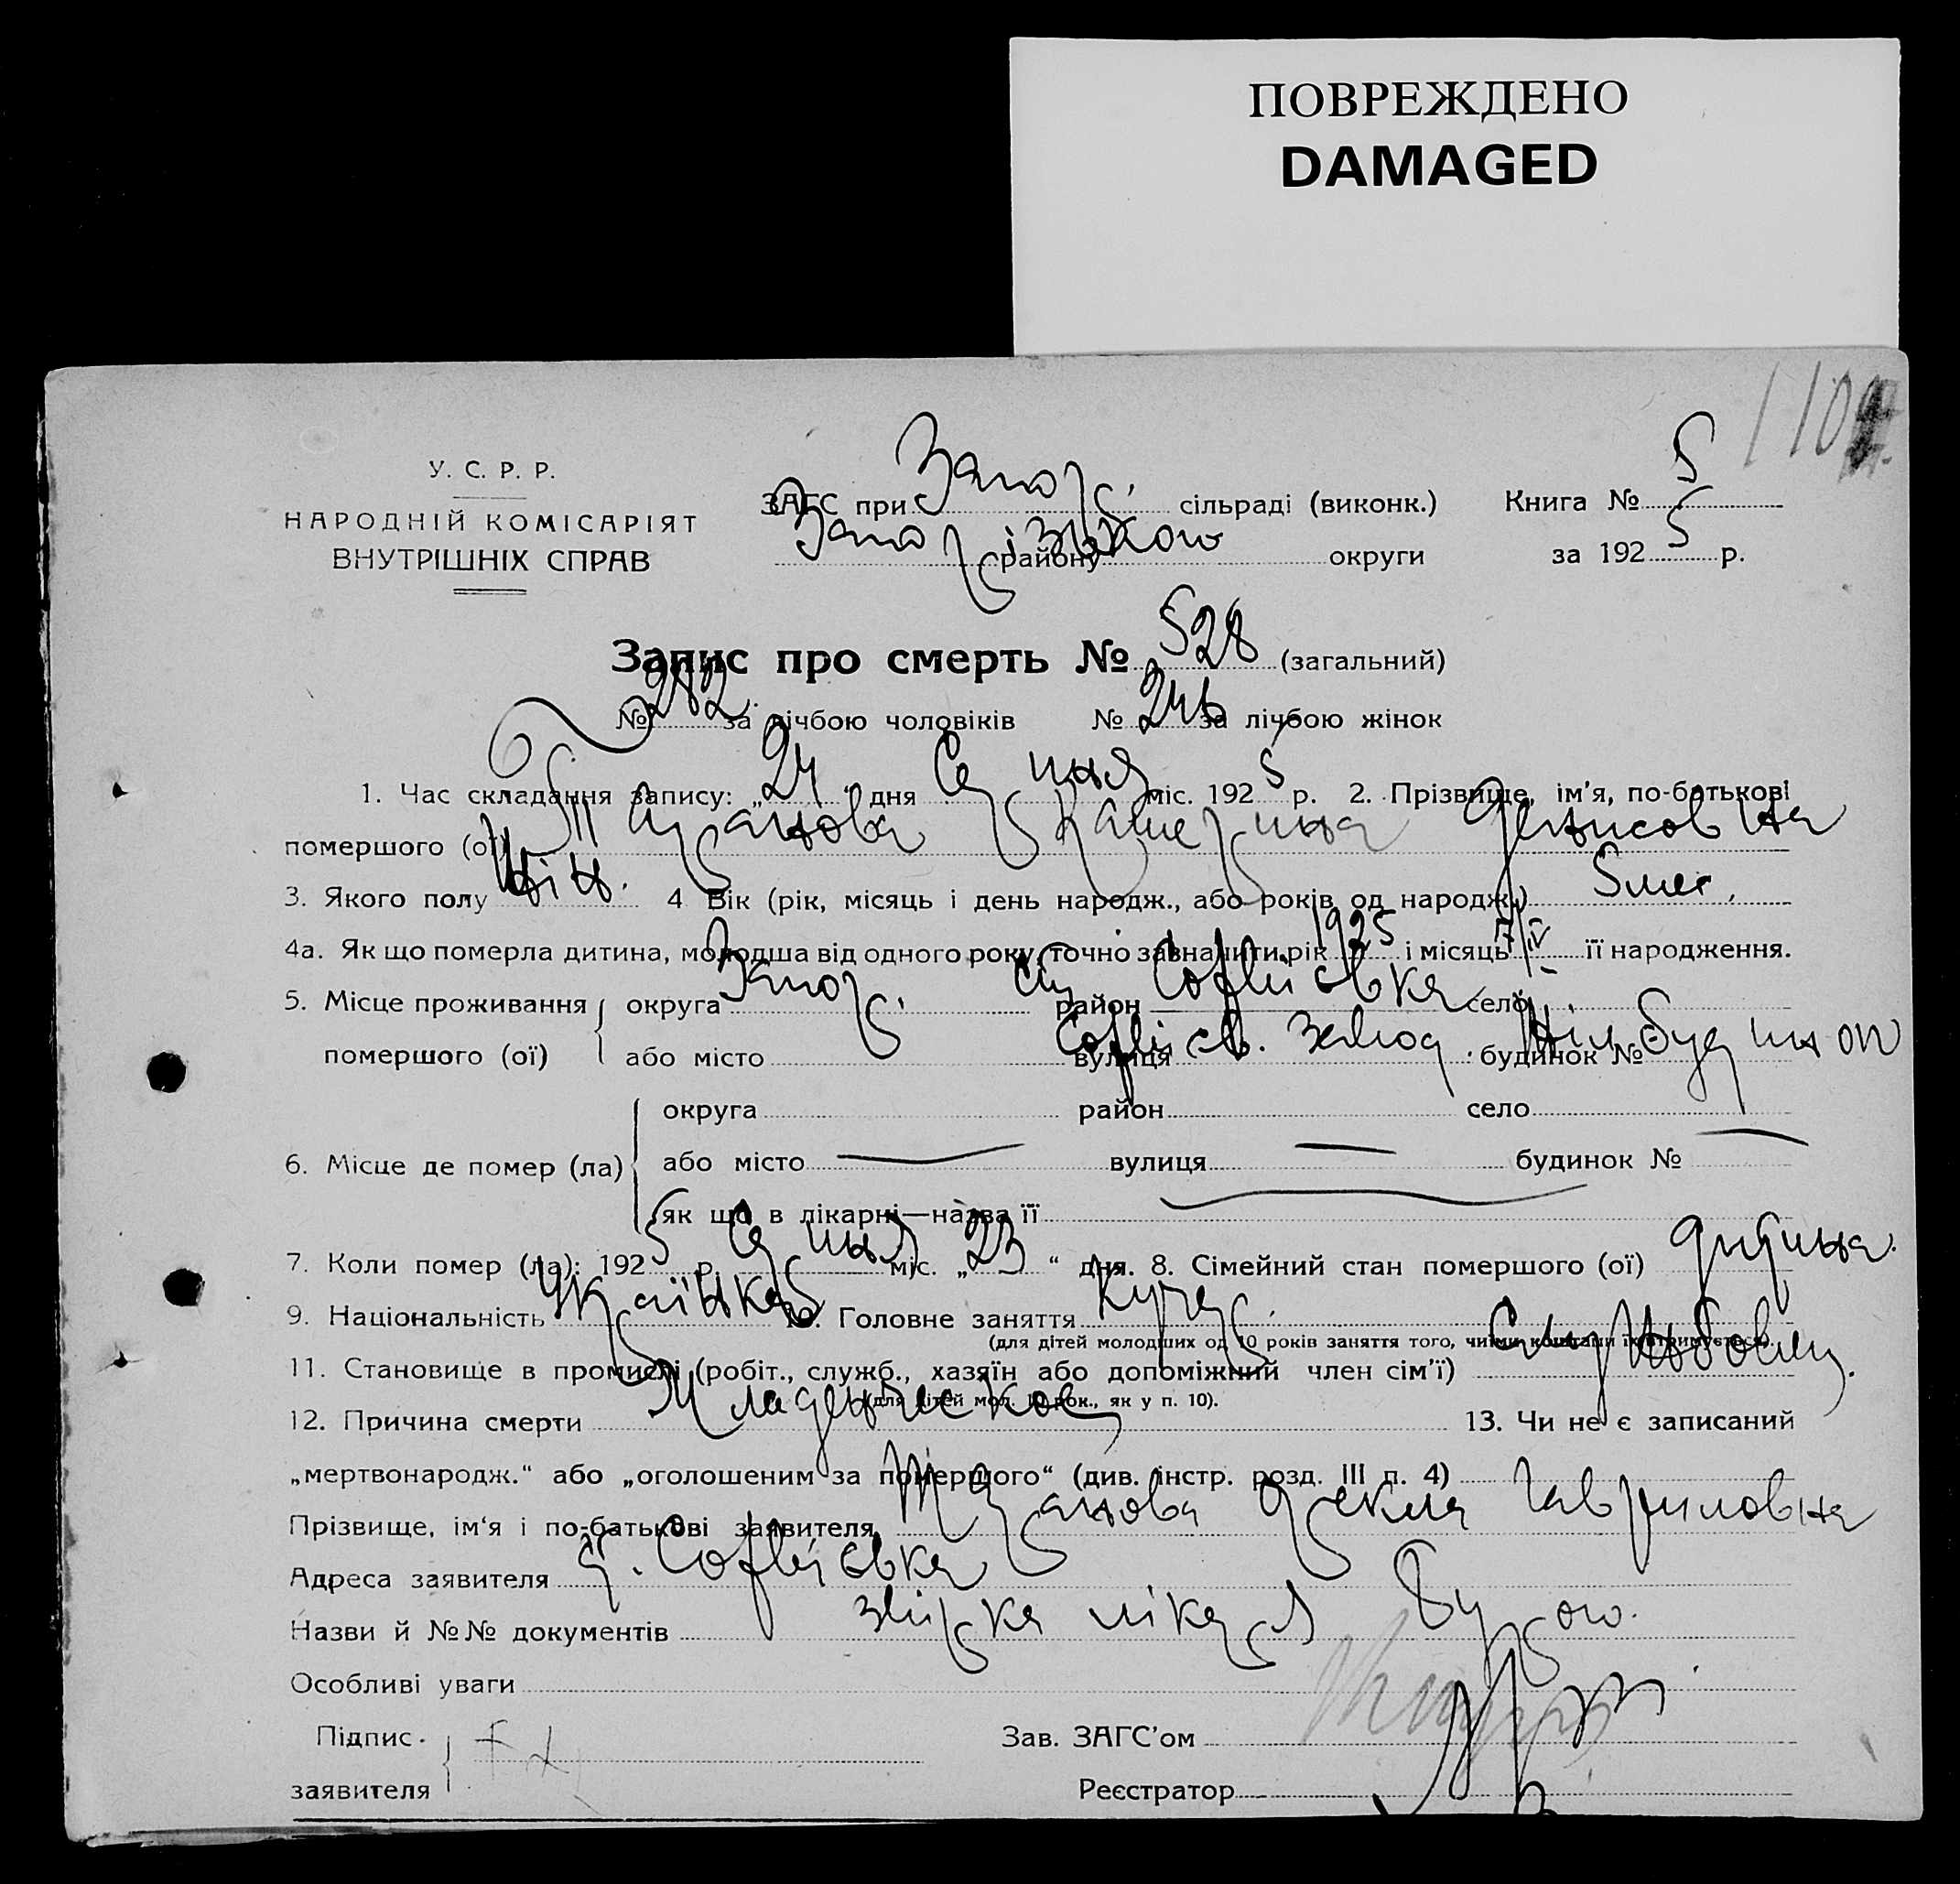 ПОВРЕЖДЕНО
DAMAGED
У. С. Р. Р.
НАРОДНІЙ КОМІСАРІЯТ
ВНУТРІШНІХ СПРАВ
ЗАГС при Запор. сільраді (виконк.)
Запорізького району округи
Книга № 5
за 1925 р.
Запис про смерть № 528 (загальний)
№ 282 за лічбою чоловіків № 246 за лічбою жінок
1. Час складання запису: „24“ дня Серпня міс. 1925 р. 2. Прізвище, ім'я, по-батькові
помершого (ої) Катерина Денисовна
3. Якого полу Жін. 4 Вік (рік, місяць і день народж., або років од народж.) 5 мес.
4а. Як що померла дитина, молодша від одного року, точно зазначити рік 1925 і місяць 7/IV її народження.
5. Місце проживання округа Запор. район Софіівка село
помершого (ої) або місто вулиця Софіів. завод. будинок № Жил будинок
округа район село
6. Місце де помер (ла) або місто — вулиця — будинок № —
як що в лікарні—назва її
7. Коли помер (ла): 1925 р. Серпня міс. „23“ дня. 8. Сімейний стан помершого (ої) дитина.
9. Національність Українка 10. Головне заняття
(для дітей молодших од 10 років заняття того, чиїми коштами їх утримується).
11. Становище в промислі (робіт., служб., хазяїн або допоміжний член сім'ї)
(для дітей мол. 10 рок., як у п. 10).
12. Причина смерти Младенческая 13. Чи не є записаний
„мертвонародж.“ або „оголошеним за помершого“ (див. інстр. розд. III п. 4)
Прізвище, ім'я і по-батькові заявителя Текля Гавриловна
Адреса заявителя с. Софіівка
Назви й №№ документів лікаря
Особливі уваги
Підпис
заявителя
Зав. ЗАГС'ом
Реєстратор